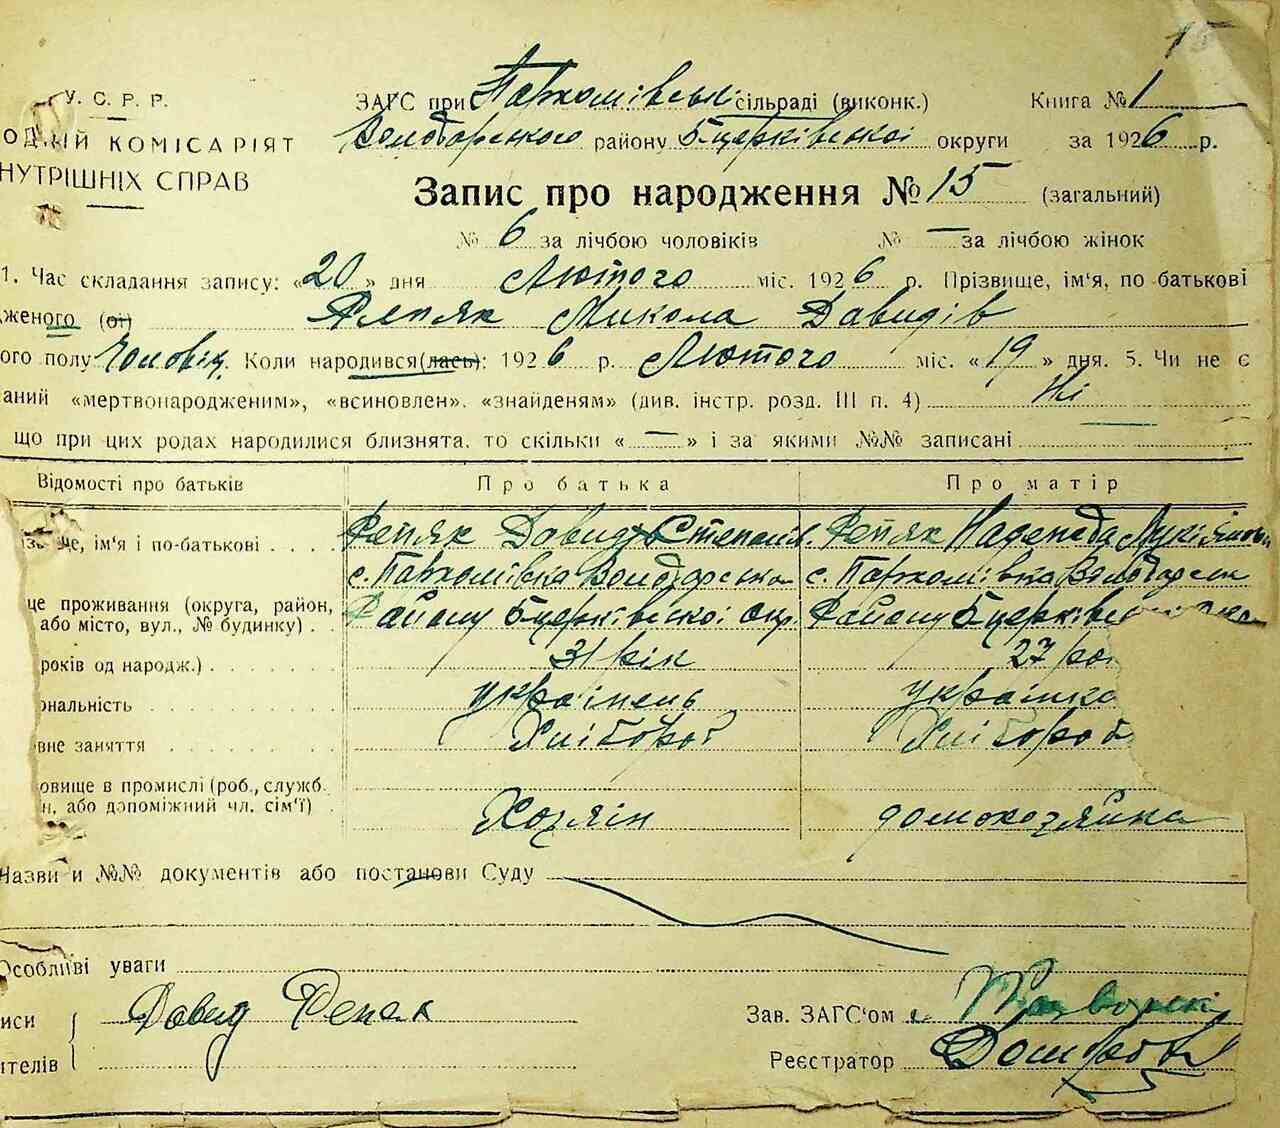 15
У. С. Р. Р.
ОДНИЙ КОМІСАРІЯТ
НУТРІШНІХ СПРАВ
ЗАГС при Пархомівській сільраді (виконк.) Книга № 1
Володарського району Бцерківської округи за 1926 р.
Запис про народження № 15 (загальний)
№ 6 за лічбою чоловіків № — за лічбою жінок
1. Час складання запису: «20» дня Лютого міс. 1926 р. Прізвище, ім'я, по батькові
дженого (ої) Репяк Микола Давидів
ого полу Чоловіч. Коли народився(лась): 1926 р. Лютого міс. «19» дня. 5. Чи не є
аний «мертвонародженим», «всиновлен». «знайденям» (див. інстр. розд. III п. 4) Ні
що при цих родах народилися близнята, то скільки « — » і за якими №№ записані
Відомості про батьків Про батька Про матір
ізвище, ім'я і по-батькові Репяк Давид Степанів. Репяк Надежда Лукіянівна
с. Пархомівка Володарська с. Пархомівка Володарськ
це проживання (округа, район, Району Бцерківської окр. Району Бцерківс
або місто, вул., № будинку)
років од народж.) 31 рік 27 ро
ональність українець українка
вне заняття Хлібороб Хлібороб
овище в промислі (роб., службо.
н. або допоміжний чл. сім'ї) Хозяїн домохозяйка
Назви и №№ документів або постанови Суду
Особливі уваги
иси Давид Репак Зав. ЗАГС'ом
ителів Реєстратор